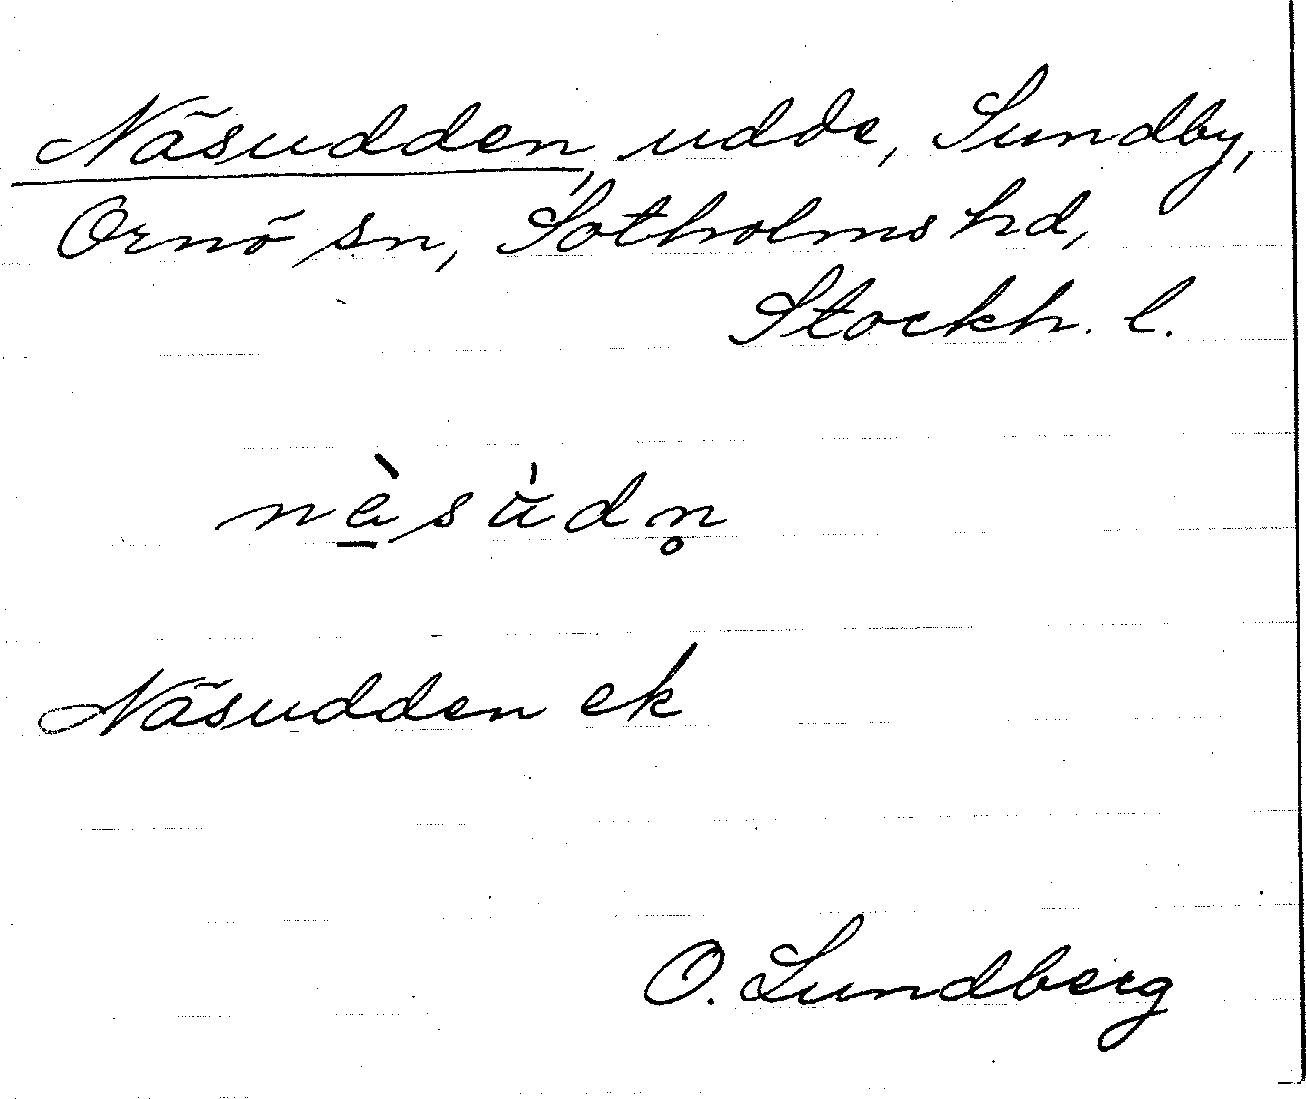 Näsudden, udde, Sundby,
Ornö sn, Sotholms hd,
Stockh. l.
nὲ̱sùdn̥
Näsudden ek
O. Lundberg